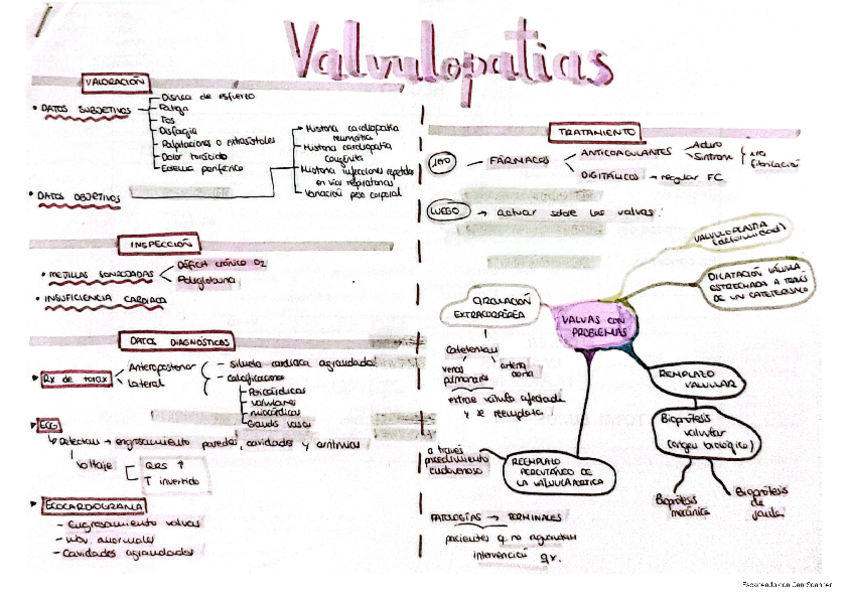 Valvulopatias
VALORACIÓN
• DATOS SUBJETIVOS
Disnea de esfuerzo
Fatiga
Tos
Disfagia
Palpitaciones o extrasístoles
Dolor torácido
Edema periférico
• DATOS OBJETIVOS
Historia cardiopatía
reumática
Historia cardiopatía
congénita
Historia infecciones repetidas
en vías respiratorias
Variación peso corporal
INSPECCIÓN
• MEJILLAS SONROJADAS
Déficit crónico O2
Poliglobulina
• INSUFICIENCIA CARDIACA
DATOS DIAGNÓSTICOS
Rx de torax
Anteroposterior
Lateral
- silueta cardiaca agrandada
- calcificaciones
Pericárdicas
valvulares
miocárdicas
Grandes vasos
ECG
Detectan → engrosamiento paredes, cavidades y arritmias
Voltaje
QRS ↑
T invertido
ECOCARDIOGRAMA
- Engrosamiento valvas
- Mov. anormales
- Cavidades agrandadas
TRATAMIENTO
1ERO
- FÁRMACOS
ANTICOAGULANTES
Adiro
Sintrom
fibrilación
DIGITÁLICOS → regular FC
LUEGO → actuar sobre las valvas:
VALVULOPLASTIA
(deformidad)
DILATACIÓN VÁLVULA
ESTRECHADA A TRAVÉS
DE UN CATETERISMO
CIRCULACIÓN
EXTRACORPÓREA
VALVAS CON
PROBLEMAS
Cateterizan
venas
pulmonares
arteria
aorta
extrae válvula afectada
y se reemplaza
REMPLAZO
VALVULAR
Bioprótesis
valvular
(origen biológico)
Bioprótesis
mecánica
Bioprótesis
de
jaula
a través
procedimiento
endovenoso
REEMPLAZO
PERCUTÁNEO DE
LA VÁLVULA AORTICA
PATOLOGÍAS → TERMINALES
pacientes q no aguantan
intervención qx.
Escaneado con CamScanner